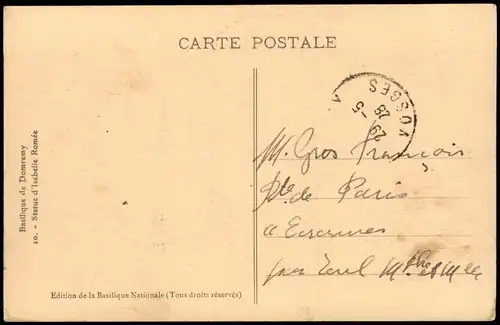 CARTE POSTALE
Basilique de Domremy
10. - Statue d'Isabelle Romée
VOSGES
29 -5
28
M. Gros François
de Paris
a
par
Edition de la Basilique Nationale (Tous droits réservés)